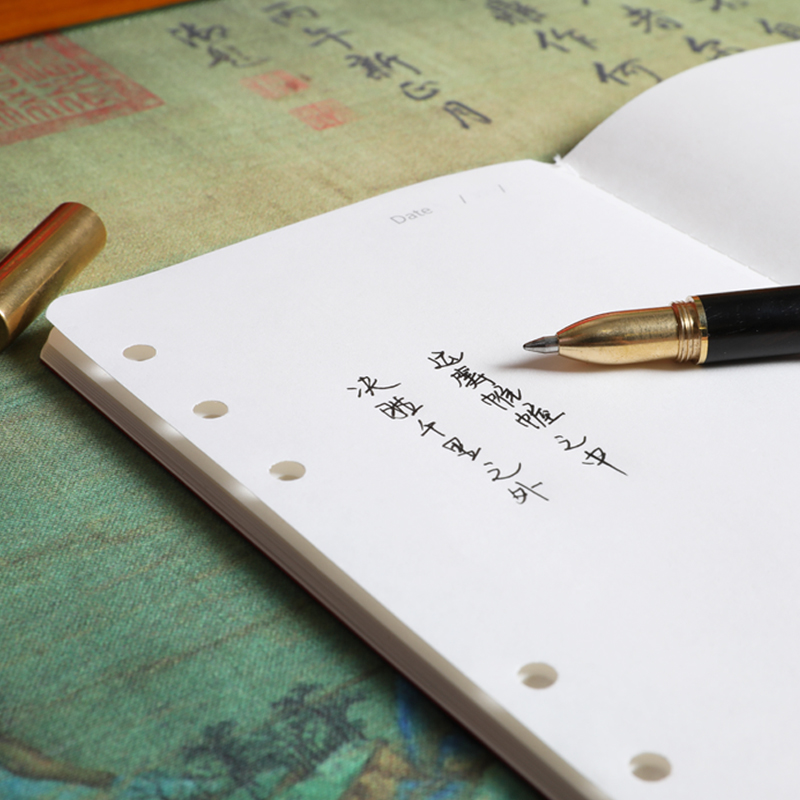 者
作何
丙午新正月
御题
Date / /
运筹帷幄之中
决胜千里之外